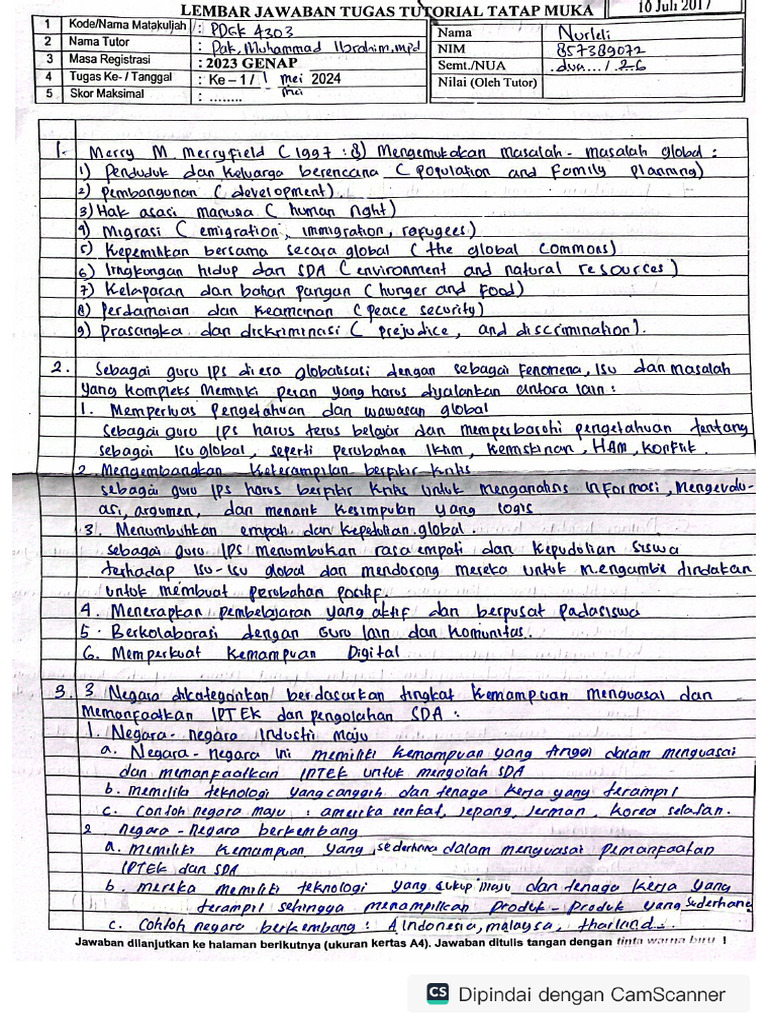 LEMBAR JAWABAN TUGAS TUTORIAL TATAP MUKA
10 Juli 2017
1 Kode/Nama Matakuljah : PDGK 4303
2 Nama Tutor : Pak, Muhammad Ibrahim, mpd
3 Masa Registrasi : 2023 GENAP
4 Tugas Ke- / Tanggal : Ke – 1 / 1 mei 2024
mei
5 Skor Maksimal : ........
Nama Nurleli
NIM 857389072
Semt./NUA .dua.../.2.6
Nilai (Oleh Tutor)
1. Merry M. Merryfield (1997 : 8) Mengemukakan masalah-masalah global :
1) Penduduk dan keluarga berencana (population and Family planning)
2) Pembangunan (development).
3) Hak asasi manusia (human right)
4) Migrasi (emigration, immigration, refugees)
5) Kepemilikan bersama secara global (the global commons)
6) lingkungan hidup dan SDA (environment and natural resources)
7) Kelaparan dan bahan pangan (hunger and food)
8) Perdamaian dan Keamanan (peace security)
9) Prasangka dan diskriminasi (prejudice, and discrimination).
2. Sebagai guru IPS di era globalisasi dengan sebagai Fenomena, Isu dan masalah
yang kompleks memiliki peran yang harus dijalankan antara lain :
1. Memperluas Pengetahuan dan wawasan global
Sebagai guru IPS harus terus belajar dan memperbarohi pengetahuan tentang
sebagai isu global, seperti perubahan Iklim, Kemiskinan, HAM, Konflik.
2. Mengembangkan Keterampilan berfikir Kritis
sebagai guru IPS harus berfikir Kritis untuk menganalisis informasi, Mengevalu-
asi, argumen, dan menarik Kesimpulan yang logis
3. Menumbuhkan empati dan kepedulian global.
sebagai guru IPS menumbukan rasa empati dan kepudolian siswa
terhadap isu-isu global dan mendorong mereka untuk mengambil tindakan
untuk membuat perubahan positif.
4. Menerapkan pembelajaran yang aktif dan berpusat padasiswa
5. Berkolaborasi dengan Guru lain dan Komunitas.
6. Memperkuat Kemampuan Digital
3. 3 Negara dikategorikan berdasarkan tingkat Kemampuan menguasai dan
Memanfaatkan IPTEK dan pengolahan SDA :
1. Negara-negara Industri maju
a. Negara-negara ini memiliki kemampuan yang tinggi dalam menguasai
dan memanfaatkan IPTEK untuk mengolah SDA
b. memiliki teknologi yang canggih dan tenaga kerja yang terampil
c. contoh negara maju : amerika serikat, jepang, jerman, korea selatan.
2. negara-negara berkembang
a. memiliki kemampuan yang sederhana dalam menguasai pemanfaatan
IPTEK dan SDA
b. mereka memiliki teknologi yang cukup maju dan tenaga kerja yang
terampil sehingga menampilkan produk-produk yang sederhana
c. Contoh negara berkembang : Indonesia, malaysa, thailand...
Jawaban dilanjutkan ke halaman berikutnya (ukuran kertas A4). Jawaban ditulis tangan dengan tinta warna biru !
CS Dipindai dengan CamScanner